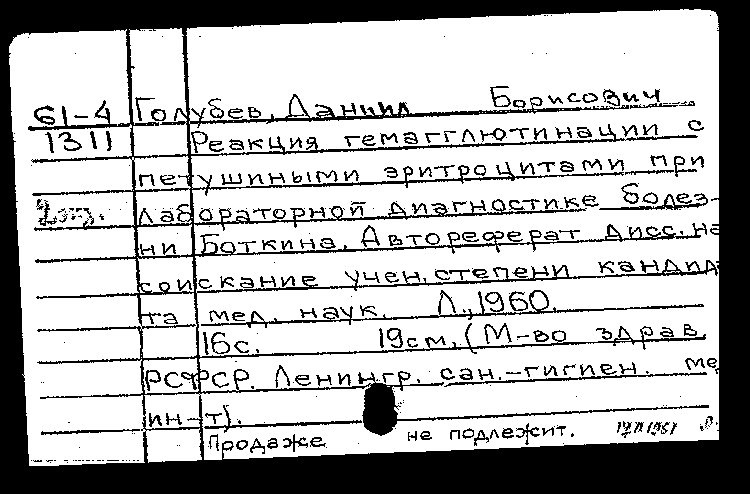 61-4 Голубев, Даниил Борисович
1311 Реакция гемагглютинации с
петушиными эритроцитами при
2экз. лабораторной диагностике болез-
ни Боткина. Автореферат дисс. на
соискание учен. степени кандида
та мед. наук. Л., 1960.
16с. 19см. (М-во здрав.
РСФСР. Ленингр. сан.-гигиен. ме
ин-т).
Продаже не подлежит.